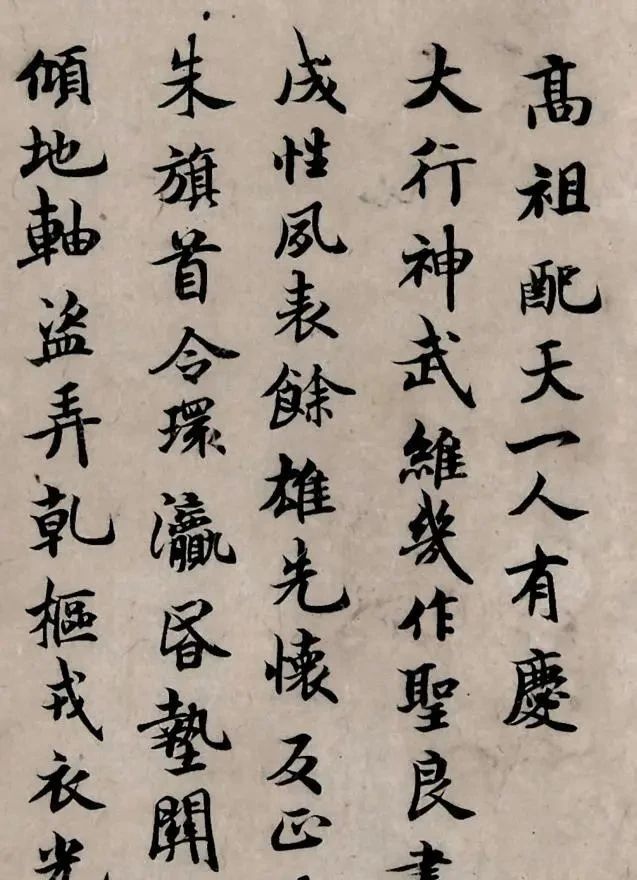 高祖配天一人有慶
大行神武維幾作聖良書
成性夙表餘雄先懷反正
朱旗首令環瀛昏墊闢
傾地軸盜弄乾樞戎衣光